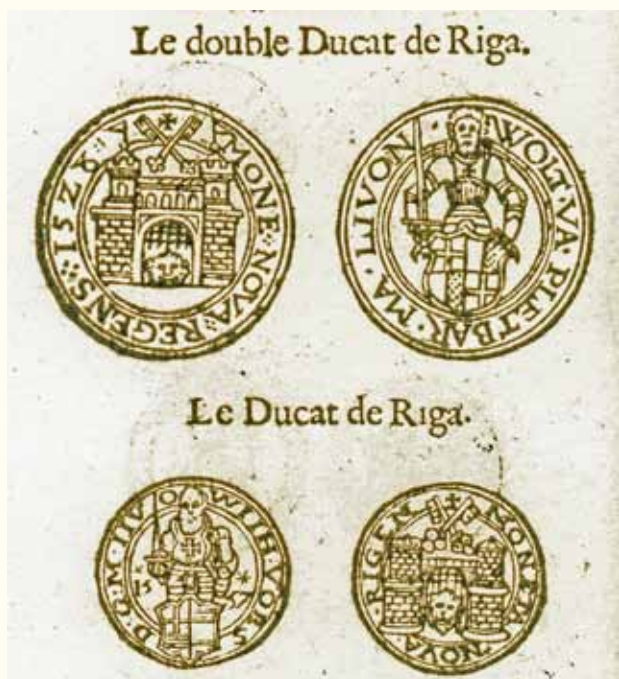 Le double Ducat de Riga.
MONE·NOVA·REGENS·1528
WOLT·VA·PLETBAR·MA·LIVON·
Le Ducat de Riga.
WIIH·VORS D·G·M·LIVO
MONETA NOVA·RIGEN